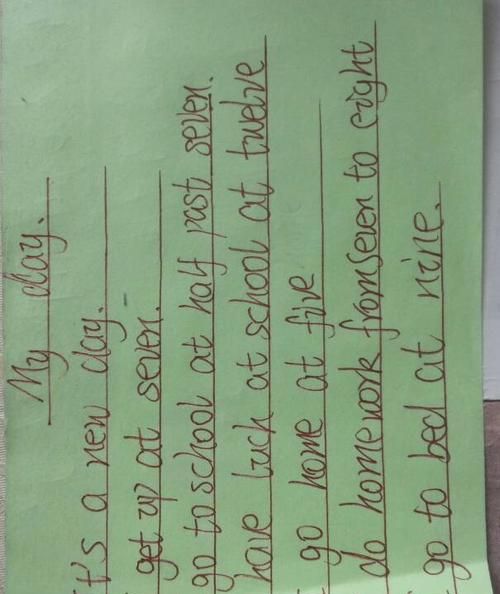 My day.
t's a new day.
get up at seven.
go to school at half past seven.
have luch at school at twelve
go home at five
do homework from seven to eight
go to bed at nine.